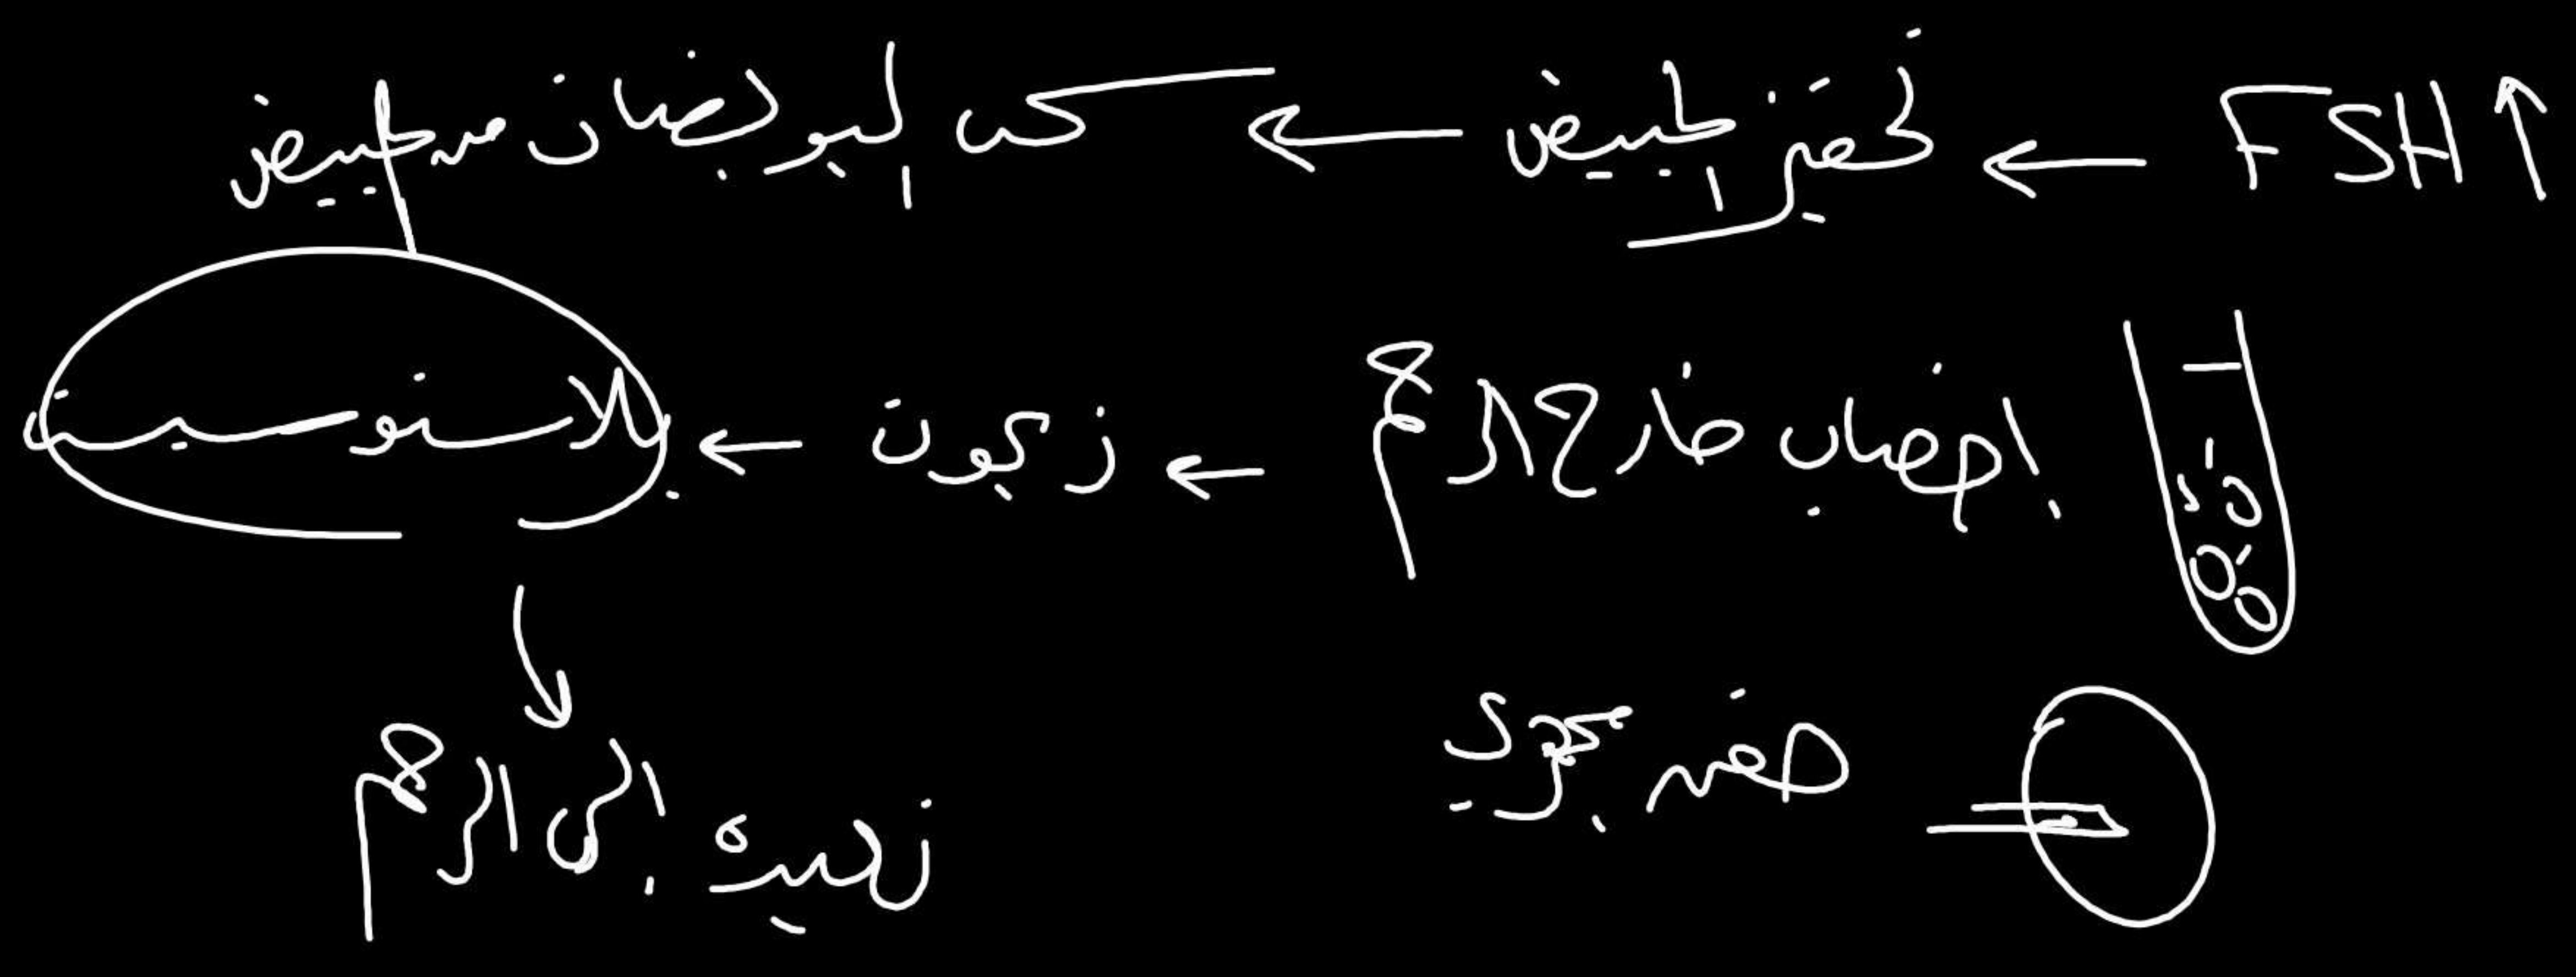 FSH↑ ← تحفيز المبيض ← سحب البويضات من المبيض
إخصاب خارج الرحم ← زيجوت ← بلاستوسيت
حقن مجهري
نعيده إلى الرحم